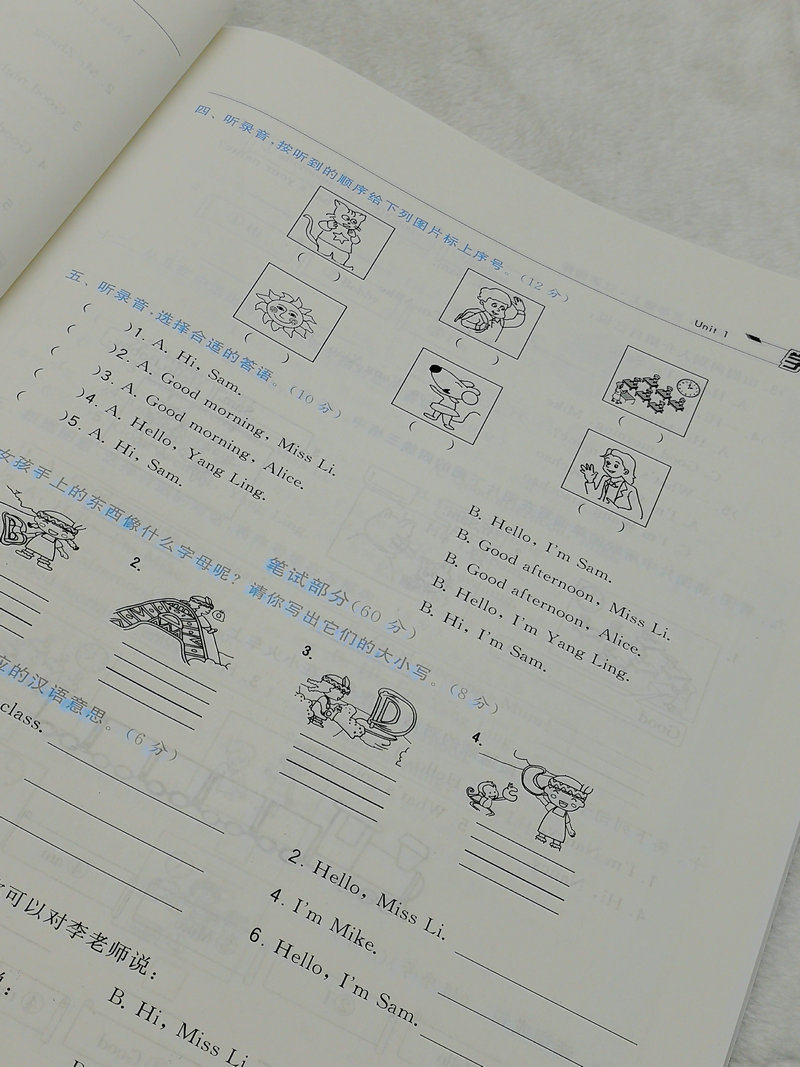 Unit 1
四、听录音,按听到的顺序给下列图片标上序号。(12 分)
( ) ( ) ( )
( ) ( ) ( )
五、听录音,选择合适的答语。(10 分)
( )1. A. Hi, Sam. B. Hello, I'm Sam.
( )2. A. Good morning, Miss Li. B. Good afternoon, Miss Li.
( )3. A. Good morning, Alice. B. Good afternoon, Alice.
( )4. A. Hello, Yang Ling. B. Hello, I'm Yang Ling.
( )5. A. Hi, Sam. B. Hi, I'm Sam.
笔试部分(60 分)
女孩手上的东西像什么字母呢?请你写出它们的大小写。(8 分)
B
2.
3.
D
4.
C
应的汉语意思。(6 分)
class.
2. Hello, Miss Li.
4. I'm Mike.
6. Hello, I'm Sam.
可以对李老师说:
B. Hi, Miss Li.